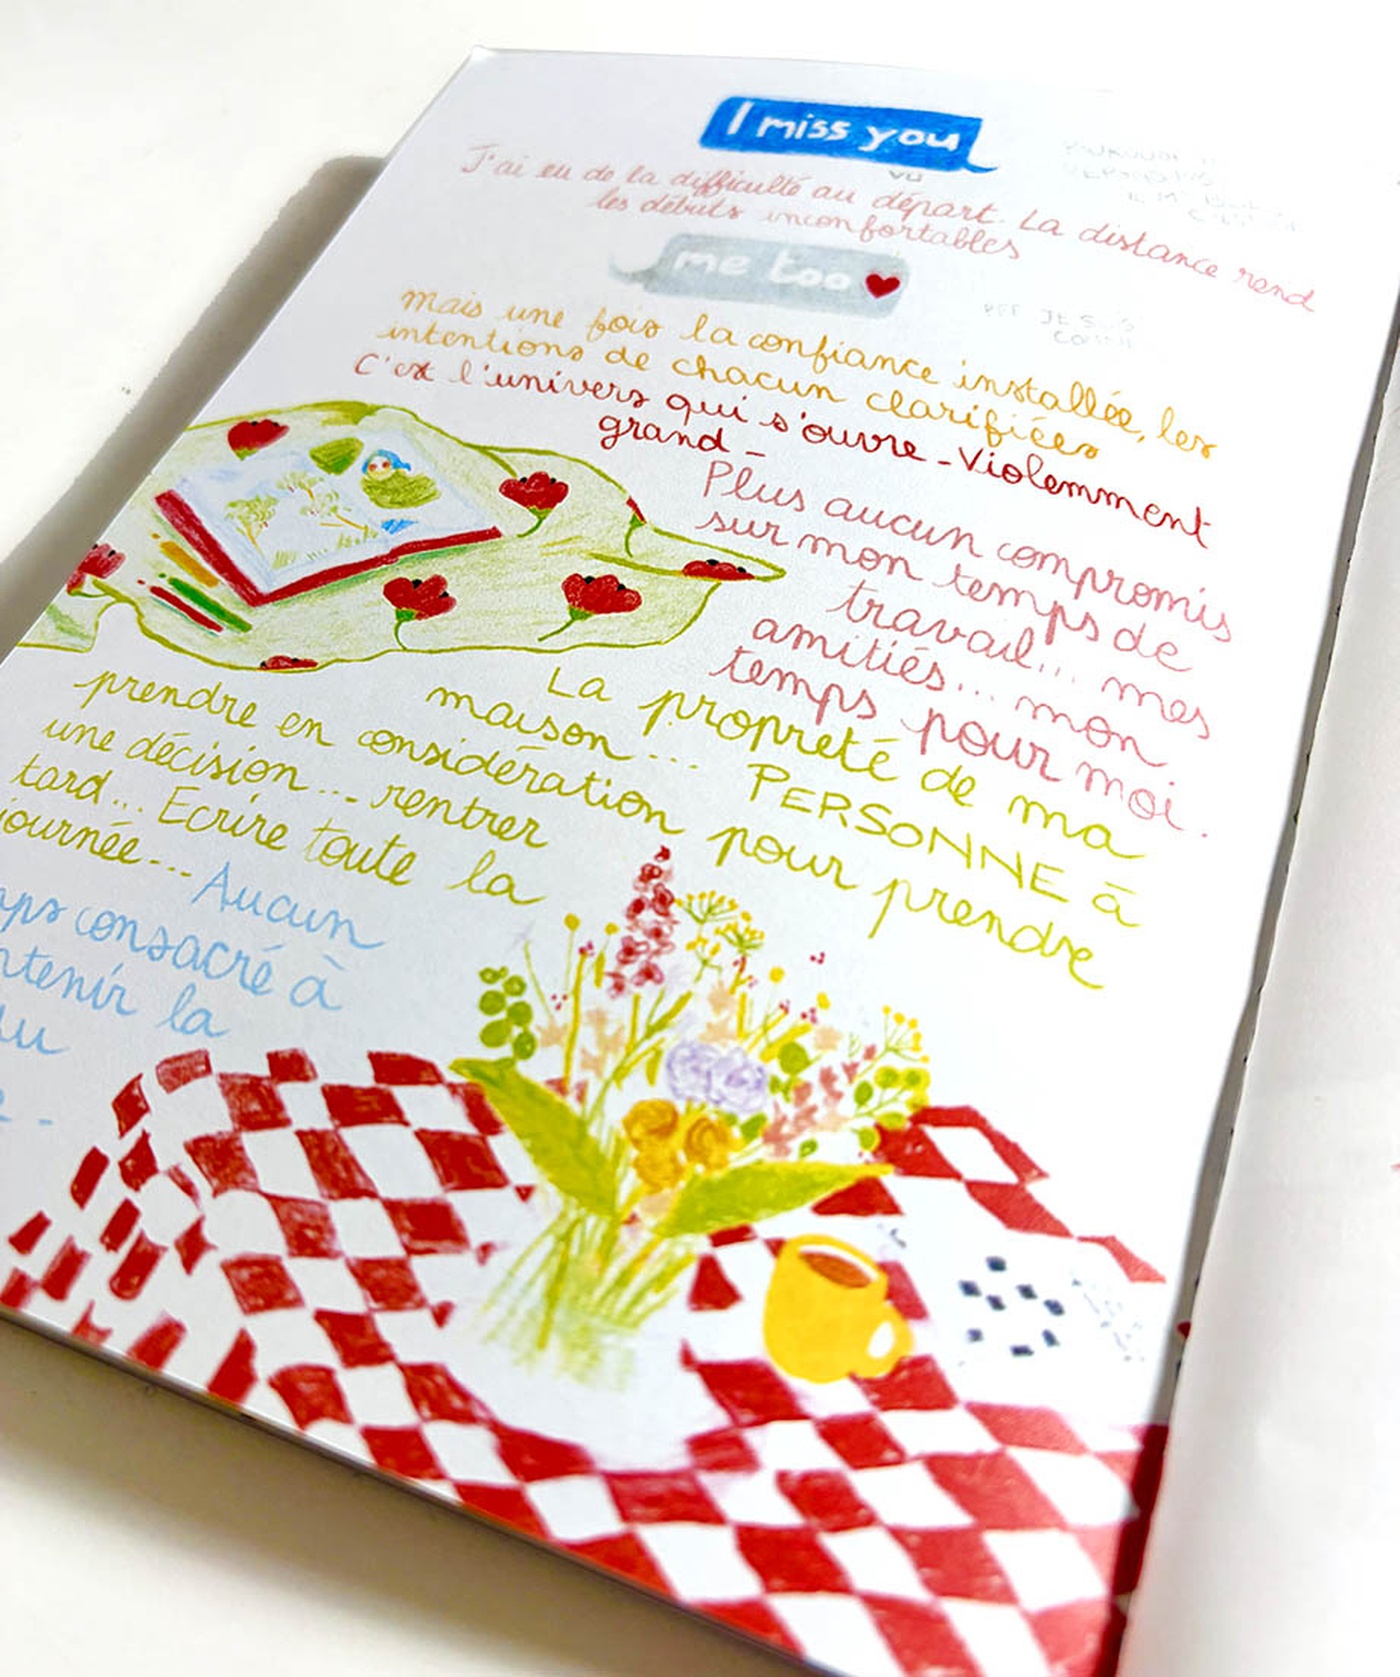 I miss you
vu
J'ai eu de la difficulté au départ. La distance rend
les débuts inconfortables
me too
Mais une fois la confiance installée, les
intentions de chacun clarifiées
C'est l'univers qui s'ouvre - Violemment
grand -
Plus aucun compromis
sur mon temps de
travail... mes
amitiés... mon
temps pour moi.
La propreté de ma
maison... PERSONNE à
prendre en considération pour prendre
une décision... rentrer
tard... Ecrire toute la
journée... Aucun
consacré à
la